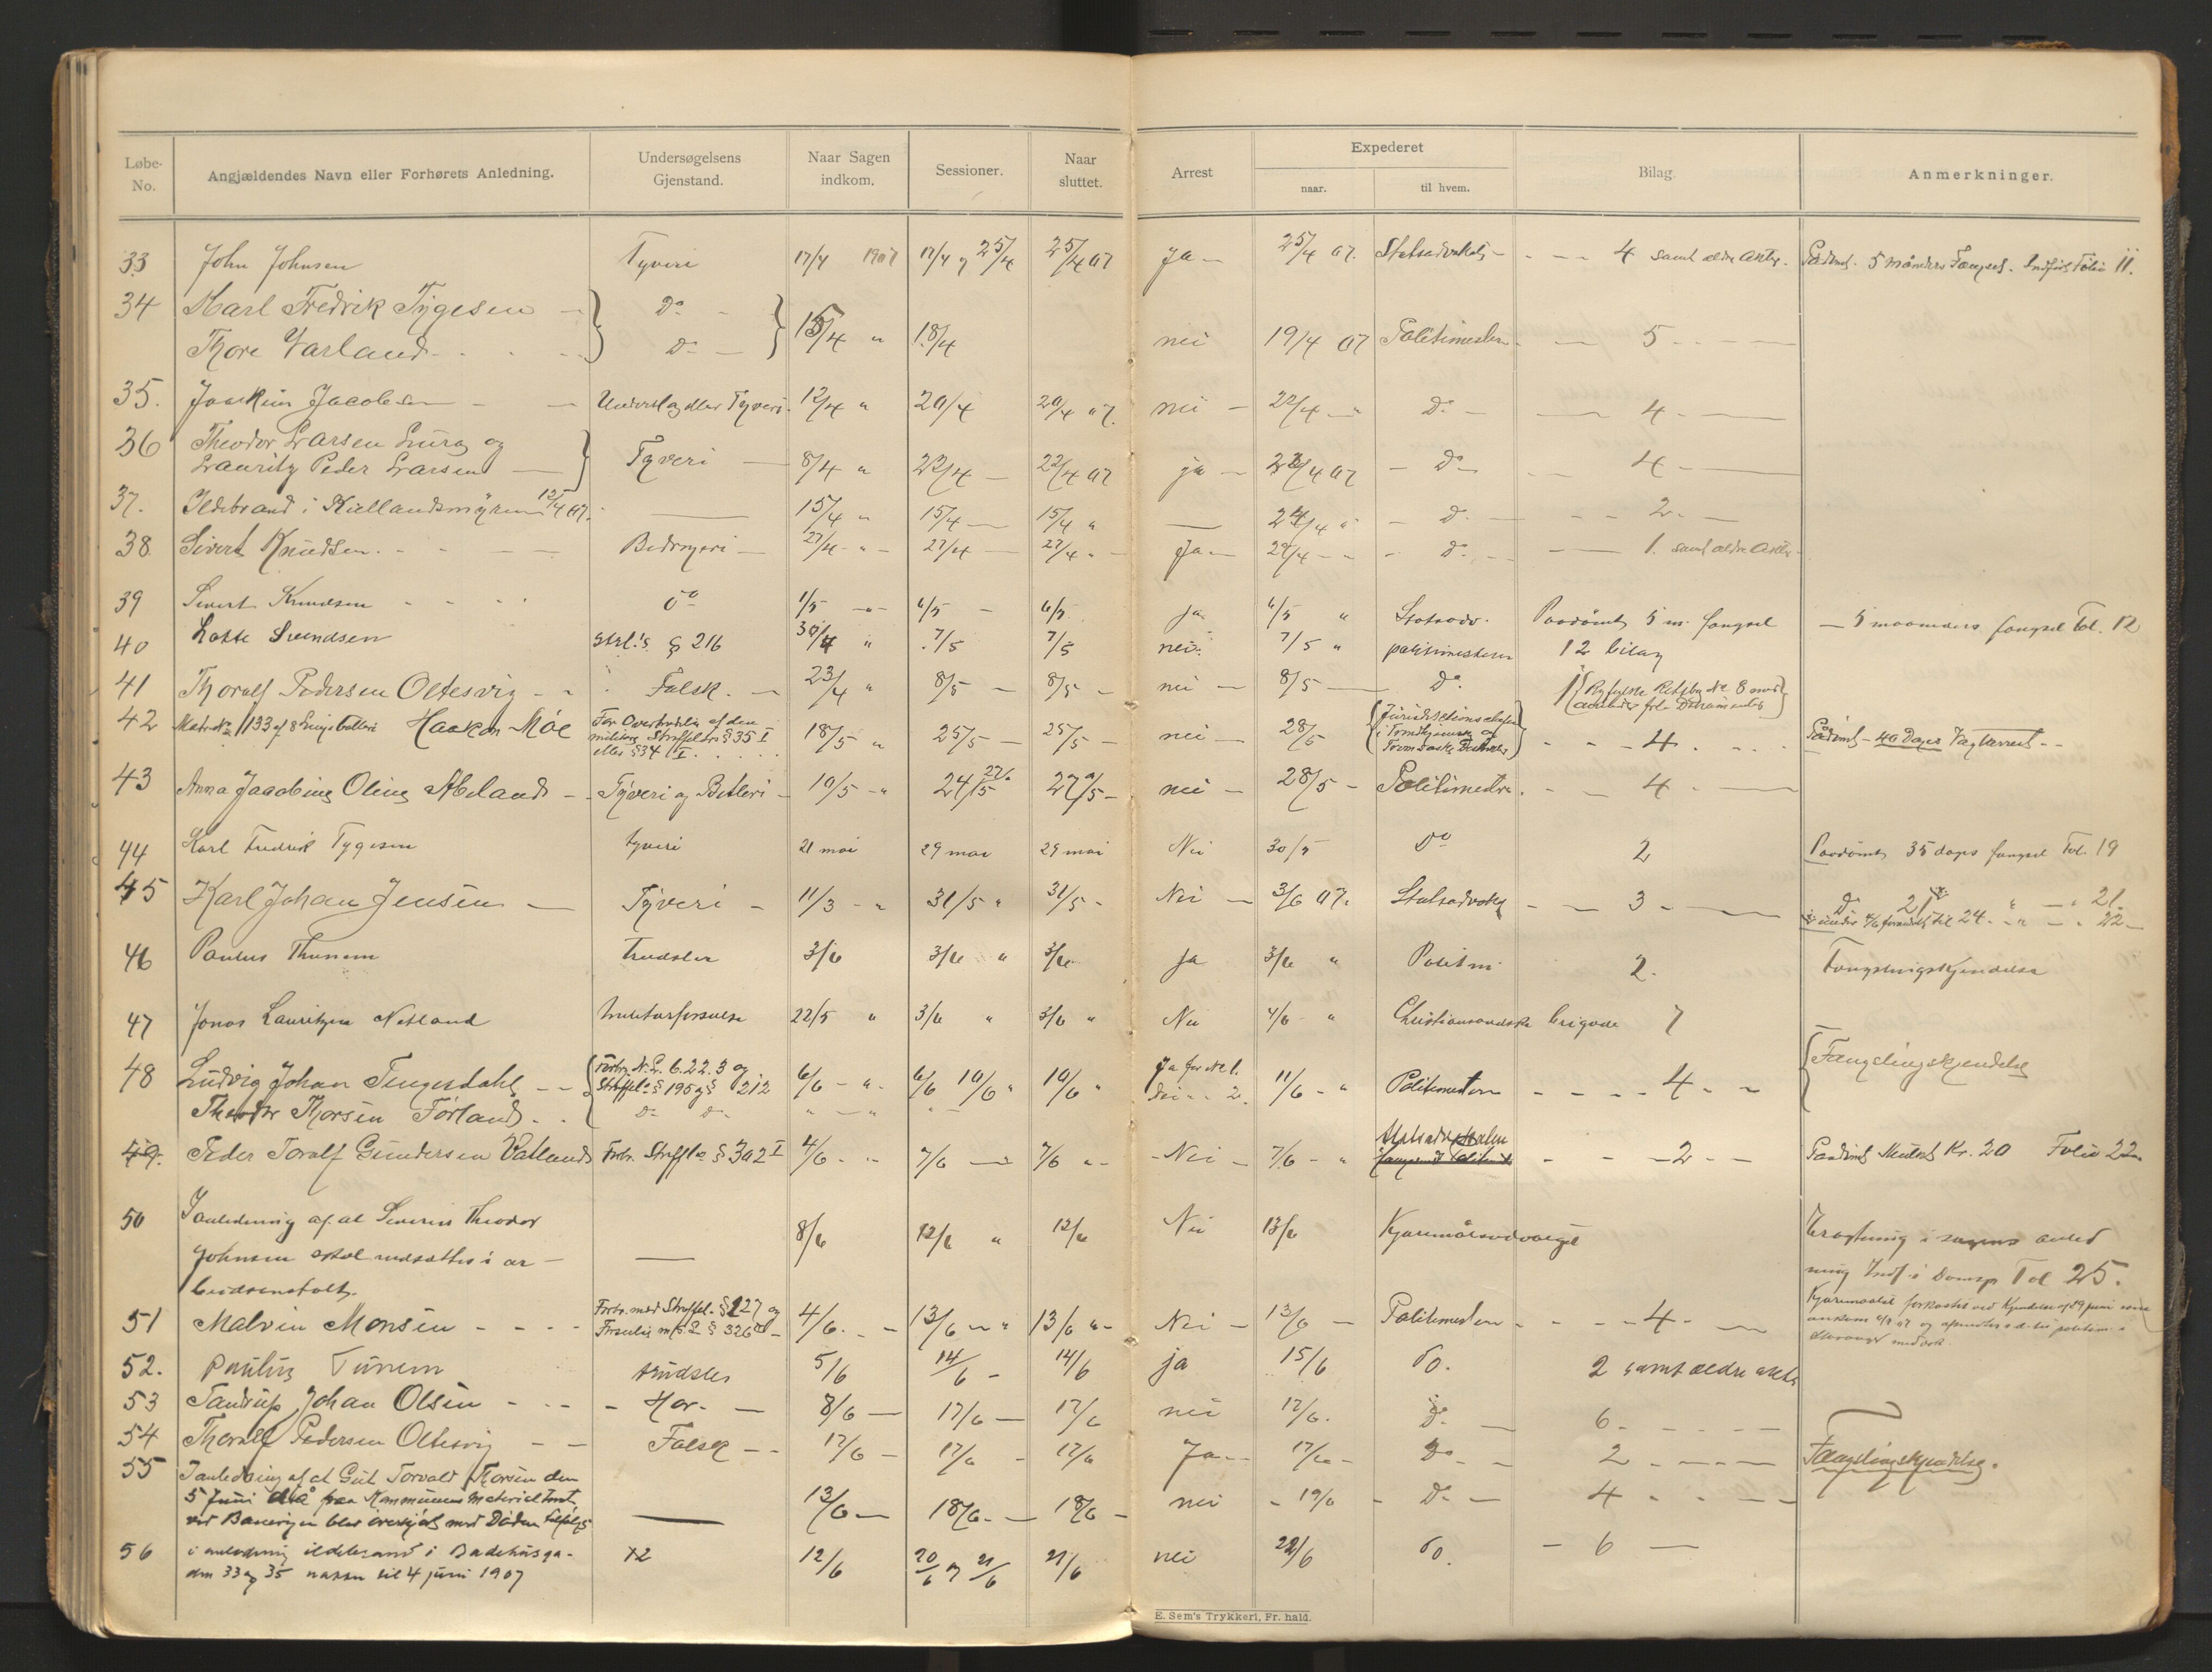 Løbe-No. Angjældendes Navn eller Forhørets Anledning. Undersøgelsens Gjenstand. Naar Sagen indkom. Sessioner. Naar sluttet. Arrest Expederet naar. til hvem. Bilag. Anmerkninger.
33 John Johnsen Tyveri 17/4 1907 17/4 og 25/4 25/4 07 Ja — 25/4 07. Statsadvokaten — 4 samt ældre akter. Pådømt. 5 måneders Fængsel. Indført Folio 11.
34 Karl Fredrik Tygesen — Do — 15/4 " 18/4 nei 19/4 07 Politimesteren — 5 —
Thore Varland Do —
35. Joackim Jacobsen — Underslag eller Tyveri. 12/4 " 20/4 20/4 07. nei — 22/4 — " Do — 4 —
36 Theodor Larsen Lura og
Lauritz Peder Larsen — Tyveri — 8/4 " 22/4 — 22/4 07 ja — 23/4 07 — Do — 4 —
37. Ildebrand i Kiellandsmyren 12/4 07. — 15/4 " 15/4 — 15/4 " — 24/4 " — Do — 2 —
38. Sivert Knudsen. — Bedrageri — 27/4 — " — 27/4 — 27/4 " — Ja — 29/4 — " — Do — 1. samt ældre Akter
39 Sivert Knudsen Do 1/5 — " — 6/5 — 6/5 ja 6/5 " Statsadv. Paadømt 5 m. fængsel — 5 maaneders fængsel Fol. 12
40 Lotte Svendsen Strl.s § 216 30/4 " 7/5 7/5 nei. 7/5 " politimesteren 12 bilag
41 Thoralf Pedersen Oltesvig — Falsk. — 23/4 " 8/5 — 8/5 — nei — 8/5 — Do 1 Ryfylke Retsbog No 8 med
42 Matr No 133 af 8 Linjebatteri Haakon Moe For Overtrædelse af den
militære Straffelovs § 35 I
eller § 34 I. 18/5 " 25/5 — 25/5 — nei — 28/5 — 4 — Pådømt — 40 Dages Vagtarrest —
43 Anna Jacobine Oline Abeland — Tyveri og Betleri — 10/5 — " 24/5 27/5 27/5 — nei — 28/5 — Politimestr. — 4 —
44 Karl Fredrik Tygesen tyveri 21 mai 29 mai 29 mai Nei 30/5 Do 2 Paadømt 35 dages fængsel Fol. 19
45 Karl Johan Jensen — Tyveri — 11/3 — " 31/5 " 31/5 — Nei — 3/6 07. Statsadvokat — 3 — Do 21 " — " 21.
24 — " — " 22 —
46 Paulus Thunem trudsler 3/6 3/6 " 3/6 ja 3/6 " Politim. 2. Fængslingskjendelse
47 Jonas Lauritzen Netland 22/5 " 3/6 " 3/6 " Nei 4/6 " Christiansandske brigade 7
48 Ludvig Johan Tengesdahl — N.L. 6.22.3 og
Straffel. § 195 og § 212 6/6 — " 6/6 10/6 " 10/6 " Ja for No 1.
Nei — 2. 11/6 — " Politimesteren — 4 — Fængslingskjendelse
Theodor Thorsen Førland — Do Do " — "
49. Peder Toralf Gundersen Vatland Forbr. Straffl. § 302 I 4/6 — " 7/6 — 7/6 " — Nei — 7/6 — " Statsadvokaten — 2 — Paadømt Mulkt Kr. 20 Folio 22
50 I anledning af at Severin Theodor
Johnsen skal indsættes i ar-
beidsanstalt. — 8/6 12/6 " 12/6 Nei 13/6 Kjæremålsudvalget i sagens anled
ning Indf. i Domsp. Fol 25.
Kjæremaalet forkastet ved Kjendelse af 29 juni
51 Malvin Monsen — Forbr. mod Straffel. § 227 og
Forseelse m. S.L § 326 — 4/6 — 13/6 — " 13/6 " — Nei — 13/6 — Politimesteren — 4 —
52. Paulus Tunem trudsler 5/6 14/6 — 14/6 ja 15/6 Do. 2 samt ældre akter
53 Tandrup Johan Olsen — Hor. — 8/6 — 17/6 — 17/6 nei 17/6. Do — 6 —
54 Thoralf Pedersen Oltesvig — Falsk — 17/6 — 17/6 — 17/6 Ja — 17/6 — Do — 2 — Fængslingskjendelse.
55 I anledning af at Gut Torvald Thorsen den
5 Juni då paa Kommunens Materialtomt
ved Banevigen blev overkjørt med Døden tilfølge — 13/6 — 18/6 — 18/6 — nei — 19/6 — Do — 4 —
56 i anledning ildebrand i Badehusga-
den 33 og 35 natten til 4 juni 1907 12/6 20/6 og 21/6 21/6 nei 22/6 Do. — 6 —
E. Sem's Trykkeri, Fr. hald.